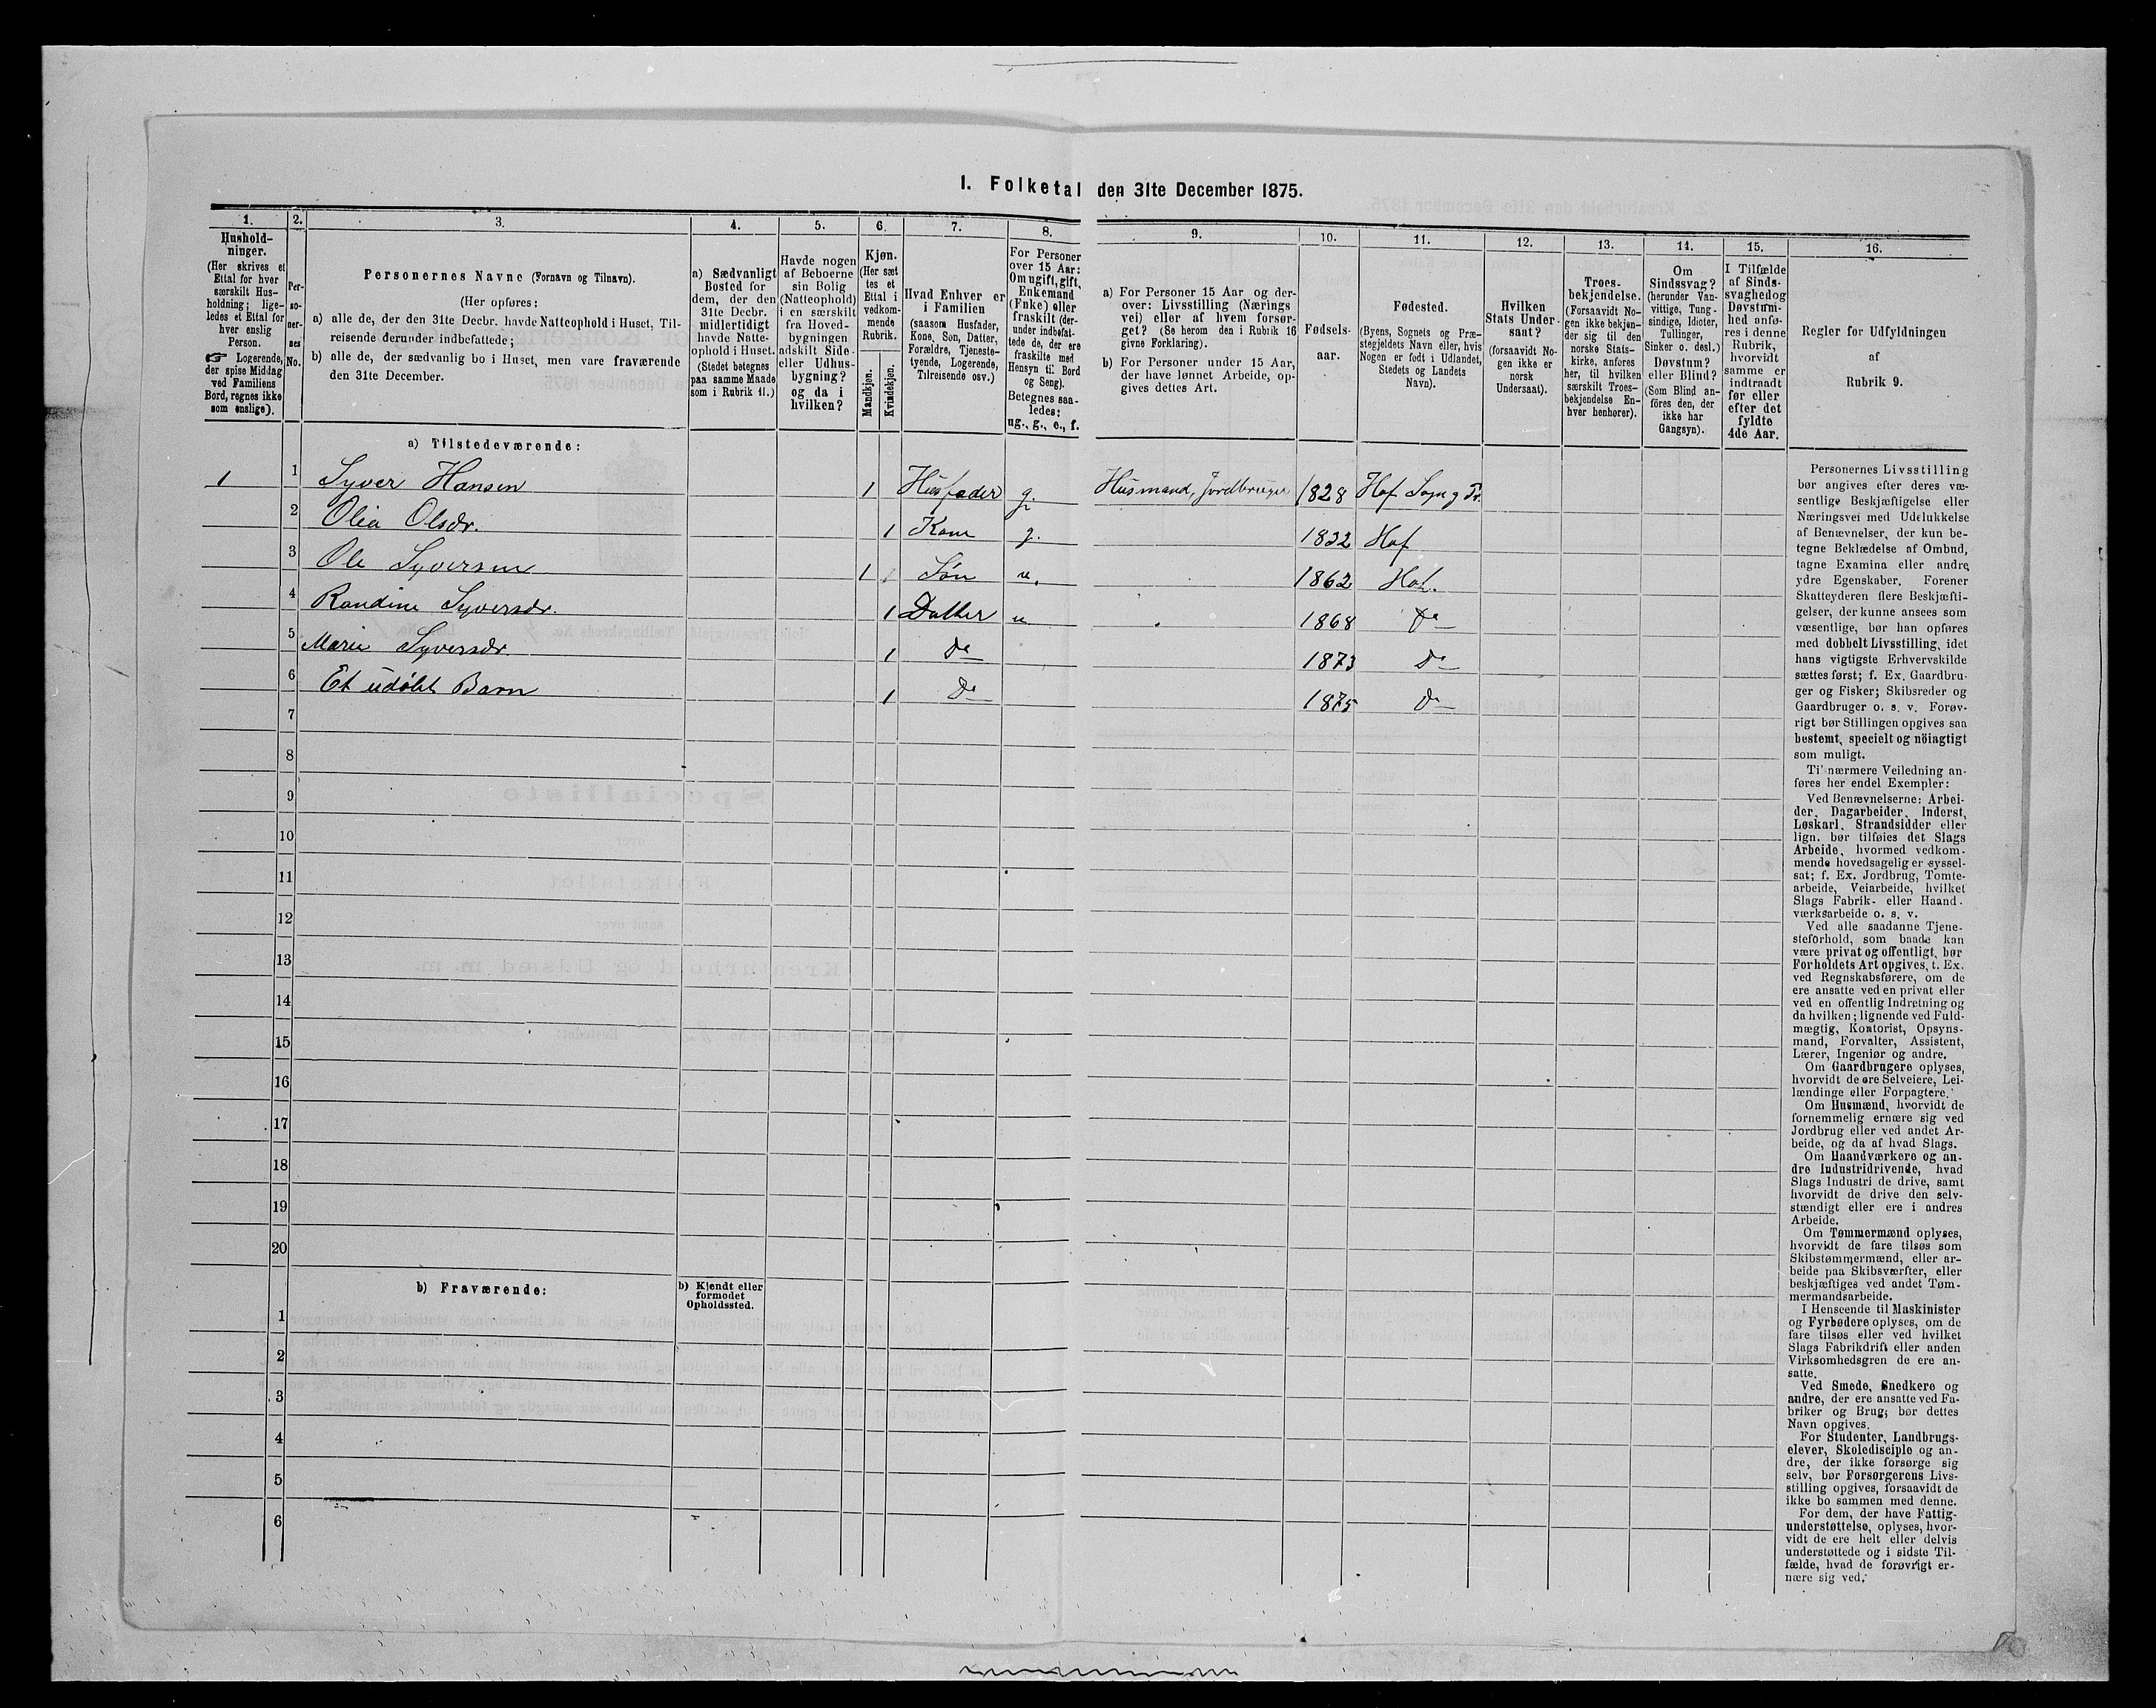 I. Folketal den 31te December 1875.
1.
Hushold-
ninger.
(Her skrives et
Ettal for hver
særskilt Hus-
holdning; lige-
ledes et Ettal for
hver enslig
Person.
☞ Logerende,
der spise Middag
ved Familiens
Bord, regnes ikke
som enslige).
2.
Per-
so-
ner-
nes
No.
3.
Personernes Navne (Fornavn og Tilnavn).
(Her opføres:
a) alle de, der den 31te Decbr. havde Natteophold i Huset, Til-
reisende derunder indbefattede;
b) alle de, der sædvanlig bo i Huset, men vare fraværende
den 31te December.
4.
a) Sædvanligt
Bosted for
dem, der den
31te Decbr.
midlertidigt
havde Natte-
ophold i Huset.
(Stedet betegnes
paa samme Maade
som i Rubrik 11.)
5.
Havde nogen
af Beboerne
sin Bolig
(Natteophold)
i en særskilt
fra Hoved-
bygningen
adskilt Side-
eller Udhus-
bygning?
og da i
hvilken?
6.
Kjøn.
(Her sæt
tes et
Ettal i
vedkom-
mende
Rubrik.
Mandkjøn.
Kvindekjøn.
7.
Hvad Enhver er
i Familien
(saasom Husfader,
Kone, Søn, Datter,
Forældre, Tjeneste-
tyende, Logerende,
Tilreisende osv.)
8.
For Personer
over 15 Aar:
Om ugift, gift,
Enkemand
(Enke) eller
fraskilt (der-
under indbefat-
tede de, der ere
fraskilte med
Hensyn til Bord
og Seng).
Betegnes saa-
ledes:
ug., g., e., f.
9.
a) For Personer 15 Aar og der-
over: Livsstilling (Nærings
vei) eller af hvem forsør-
get? (Se herom den i Rubrik 16
givne Forklaring).
b) For Personer under 15 Aar,
der have lønnet Arbeide, op-
gives dettes Art.
10.
Fødsels-
aar.
11.
Fødested.
(Byens, Sognets og Præ-
stegjeldets Navn eller, hvis
Nogen er født i Udlandet,
Stedets og Landets
Navn).
12.
Hvilken
Stats Under-
saat?
(forsaavidt No-
gen ikke er
norsk
Undersaat).
13.
Troes-
bekjendelse.
(Forsaavidt No-
gen ikke bekjen-
der sig til den
norske Stats-
kirke, anføres
her, til hvilken
særskilt Troes-
bekjendelse En-
hver henhører).
14.
Om
Sindssvag?
(herunder Van-
vittige, Tung-
sindige, Idioter,
Tullinger,
Sinker o. desl.)
Døvstum?
eller Blind?
(Som Blind an-
föres den, der
ikke har
Gangsyn).
15.
I Tilfælde
af Sinds-
svaghed og
Døvstum-
hed anfø-
res i denne
Rubrik,
hvorvidt
samme er
indtraadt
før eller
efter det
fyldte
4de Aar.
16.
Regler for Udfyldningen
af
Rubrik 9.
a) Tilstedeværende:
1 1 Syver Hansen 1 Husfader g. Husmand, Jordbruger 1828 Hof Sogn g Pr.
2 Olea Olsdr. 1 Kone g. 1832 Hof
3 Ole Syversen 1 Søn u. 1862 Hof.
4 Randine Syversdr. 1 Datter u 1868 Do
5 Marie Syversdr. 1 Do 1873 Do
6 Et udøbt Barn 1 Do 1875 Do
7
8
9
10
11
12
13
14
15
16
17
18
19
20
b) Fraværende:
b) Kjendt eller
formodet
Opholdssted.
1
2
3
4
5
6
Personernes Livsstilling
bør angives efter deres væ-
sentlige Beskjæftigelse eller
Næringsvei med Udelukkelse
af Benævnelser, der kun be-
tegne Beklædelse af Ombud,
tagne Examina eller andre
ydre Egenskaber. Forener
Skatteyderen flere Beskjæfti-
gelser, der kunne ansees som
væsentlige, bør han opføres
med dobbelt Livsstilling, idet
hans vigtigste Erhvervskilde
sættes først; f. Ex. Gaardbru-
ger og Fisker; Skibsreder og
Gaardbruger o. s. v. Forøv-
rigt bør Stillingen opgives saa
bestemt, specielt og nöiagtigt
som muligt.
Til nærmere Veiledning an-
føres her endel Exempler:
Ved Benævnelserne: Arbei-
der, Dagarbeider, Inderst,
Løskarl, Strandsidder eller
lign. bør tilføies det Slags
Arbeide, hvormed vedkom-
mende hovedsagelig er syssel-
sat; f. Ex. Jordbrug, Tomte-
arbeide, Veiarbeide, hvilket
Slags Fabrik- eller Haand-
værksarbeide o. s. v.
Ved alle saadanne Tjene-
steforhold, som baade kan
være privat og offentligt, bør
Forholdets Art opgives, t. Ex.
ved Regnskabsførere, om de
ere ansatte ved en privat eller
ved en offentlig Indretning og
da hvilken; lignende ved Fuld-
mægtig, Kontorist, Opsyns-
mand, Forvalter, Assistent,
Lærer, Ingeniør og andre.
Om Gaardbrugere oplyses,
hvorvidt de ere Selveiere, Lei-
lændinge eller Forpagtere.
Om Husmænd, hvorvidt de
fornemmelig ernære sig ved
Jordbrug eller ved andet Ar-
beide, og da af hvad Slags.
Om Haandværkere og an-
dre Industridrivende, hvad
Slags Industri de drive, samt
hvorvidt de drive den selv-
stændigt eller ere i andres
Arbeide.
Om Tømmermænd oplyses,
hvorvidt de fare tilsøs som
Skibstømmermænd, eller ar-
beide paa Skibsværfter, eller
beskjæftiges ved andet Tøm-
mermandsarbeide.
I Henseende til Maskinister
og Fyrbødere oplyses, om de
fare tilsøs eller ved hvilket
Slags Fabrikdrift eller anden
Virksomhedsgren de ere an-
satte.
Ved Smede, Snedkere og
andre, der ere ansatte ved Fa-
briker og Brug, bør dettes
Navn opgives.
For Studenter, Landbrugs-
elever, Skoledisciple og an-
dre, der ikke forsørge sig
selv, bør Forsørgerens Livs-
stilling opgives, forsaavidt de
ikke bo sammen med denne.
For dem, der have Fattig-
understøttelse, oplyses, hvor-
vidt de ere helt eller delvis
understøttede og i sidste Til-
fælde, hvad de forøvrigt er-
nære sig ved.